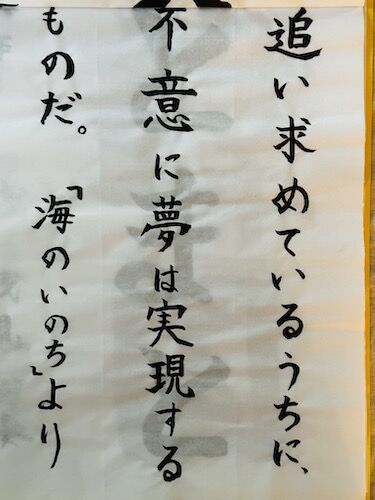 追い求めているうちに、
不意に夢は実現する
ものだ。 「海のいのち」より